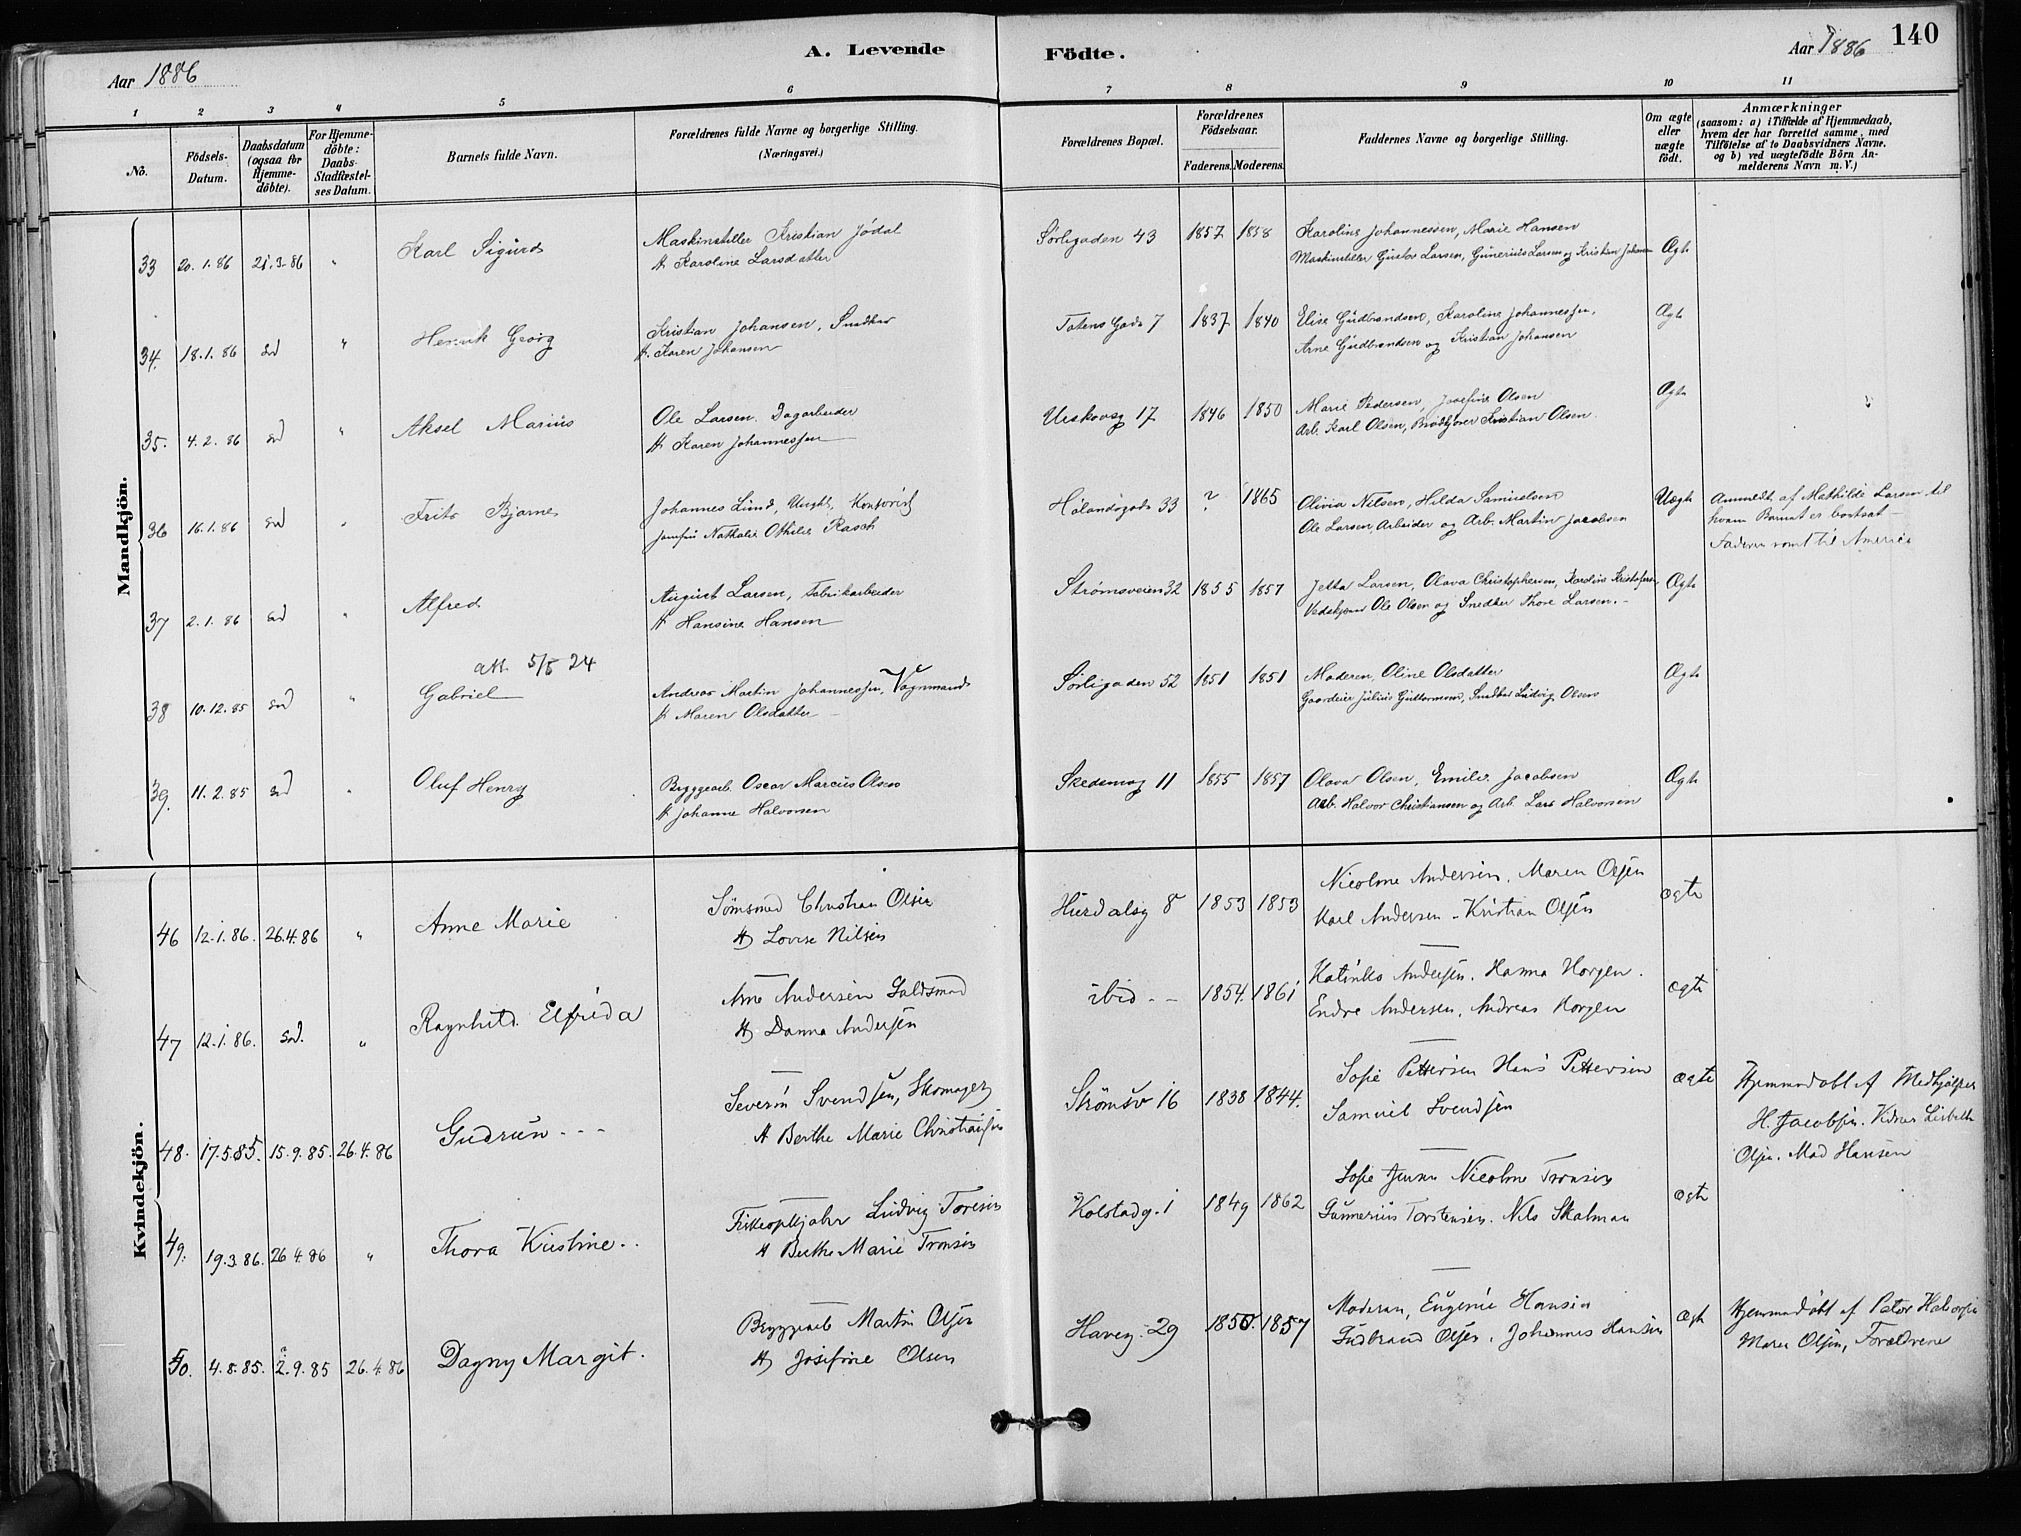 A. Levende
Födte.
140
Aar 1886
Aar 1886
1 2 3 4 5 6 7 8 9 10 11
No.
Födsels-
Datum.
Daabsdatum
(ogsaa for
Hjemme-
döbte).
For Hjemme-
döbte:
Daabs-
Stadfæstel-
ses Datum.
Barnets fulde Navn.
Forældrenes fulde Navne og borgerlige Stilling.
(Næringsvei.)
Forældrenes Bopæl.
Forældrenes
Födselsaar.
Faderens. Moderens.
Faddernes Navne og borgerlige Stilling.
Om ægte
eller
uægte
født.
Anmærkninger
(saasom: a) i Tilfælde af Hjemmedaab,
hvem der har forrettet samme, med
Tilföielse af to Daabsvidners Navne.
og b) ved uægtefödte Börn An-
melderens Navn m. V.)
Mandkjön.
33 20.1.86 21.3.86 " Karl Sigurd
Maskinstiller Kristian Jødal
& Karoline Larsdatter
Sørligaden 43 1857 1858
Karoline Johannessen, Marie Hansen
Maskinstiller Gustav Larsen, Gunerius Larsen og Kristian Johansen
Ægte
34. 18.1.86 sd " Henrik Georg
Kristian Johansen, Snedker
& Karen Johansen
Totens Gade 7 1837 1840
Elise Gudbrandsen, Karoline Johannessen,
Arne Gudbrandsen og Kristian Johansen
Ægte
35. 4.2.86 sd " Aksel Marius
Ole Larsen. Dagarbeider
& Karen Johannessen
Urskovsg 17 1846 1850
Marie Pedersen, Josefine Olsen
Arb. Karl Olsen, Brødkjører Kristian Olsen.
Ægte
36 16.1.86 sd " Frits Bjarne
Johannes Lund, Ungk., Kontorist
Josefine Nathalie Othilie Rasch
Hølandsgade 33 ? 1865
Olivia Nilsen, Hilda Samuelsen
Ole Larsen, Arbeider og Arb. Martin Jacobsen
Uægte
Anmeldt af Mathilde Larsen til
hvem Barnet er bortsat
Faderen rømt til Amerika
37 2.1.86 sd " Alfred
August Larsen, Fabrikarbeider
& Hansine Hansen
Strømsveien 32 1855 1857
Jetta Larsen, Olava Christophersen, Karoline Kristofersen
Vedskjører Ole Olsen og Snedker Thore Larsen.
Ægte
att. 5/5 24
38 10.12.85 sd " Gabriel
Andreas Martin Johannessen, Vognmand
& Maren Olsdatter
Sørligaden 52 1851 1851
Moderen, Oline Olsdatter
Gaardeier Julius Guttormsen, Snedker Ludvig Olsen
Ægte
39. 11.2.85 sd " Oluf Henry
Byggearb. Oscar Marcus Olsen
& Johanne Halvorsen
Skedsmog 11 1855 1857
Olava Olsen, Emilie Jacobsen
Arb. Halvor Christiansen og Arb. Lars Halvorsen
Ægte
Kvindekjön.
46 12.1.86. 26.4.86 " Anne Marie
Sømsmed Christian Olsen
& Lovise Nilsen
Hurdalsg 8 1853 1853
Nicoline Andersen. Maren Olsen
Karl Andersen - Kristian Olsen
ægte
47 12.1.86. sd. " Ragnhild Elfrida
Arne Andersen Guldsmed
& Danna Andersen
ibid -- 1854. 1861
Katinka Andersen. Hanna Horgen.
Endre Andersen, Andreas Horgen
ægte
48. 17.5.85. 15.9.85. 26.4.86 Gudrun ---
Severin Svendsen, Skomager
& Berthe Marie Christiansen
Strømsv 16 1838 1844.
Sofie Pettersen Hans Pettersen
Samuel Svendsen
ægte
Hjemmedøbt af Medhjælper
H. Jacobsen. Vidner Lisbeth
Olsen. Mad Hansen
49. 19.3.86. 26.4.86 " Thora Kristine..
Fiskeopkjøber Ludvig Toresen
& Berthe Marie Tronsen
Kolstadg. 1 1849 1862
Sofie Jensen Nicoline Tronsen
Gunnerius Torstensen. Nils Skalman
ægte
50. 4.8.85. 2.9.85 26.4.86 Dagny Margit.
Byggearb Martin Olsen
& Josefine Olsen
Haveg. 29 1850. 1857
Moderen, Eugenie Hansen
Gudbrand Olsen. Johannes Hansen
Ægte
Hjemmedøbt af Pastor Halvorsen
Maren Olsen, Forældrene